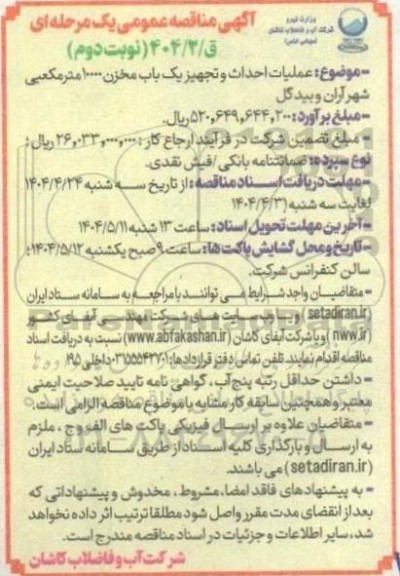 آگهی مناقصه عمومی یک مرحله ای
ق/۴۰۴/۲ (نوبت دوم)
وزارت نیرو
شرکت آب و فاضلاب کاشان
(سهامی خاص)
-موضوع: عملیات احداث و تجهیز یک باب مخزن ۱۰۰۰۰ مترمکعبی
شهر آران و بیدگل
-مبلغ برآورد: ۵۲۰,۶۴۹,۶۴۴,۲۰۰ ریال.
- مبلغ تضمین شرکت در فرآیند ارجاع کار: ۲۶,۰۳۳,۰۰۰,۰۰۰ ریال؛
نوع سپرده: ضمانتنامه بانکی/فیش نقدی.
-مهلت دریافت اسناد مناقصه: از تاریخ سه شنبه ۱۴۰۴/۴/۲۴
لغایت سه شنبه ۱۴۰۴/۴/۳)
-آخرین مهلت تحویل اسناد: ساعت ۱۳ شنبه ۱۴۰۴/۵/۱۱
-تاریخ و محل گشایش پاکت ها: ساعت ۹ صبح یکشنبه ۱۴۰۴/۵/۱۲؛
سالن کنفرانس شرکت.
-متقاضیان واجد شرایط می توانند با مراجعه به سامانه ستاد ایران
(setadiran.ir) و وب سایت های شرکت مهندسی آبفای کشور
(nww.ir) و یا شرکت آبفای کاشان (www.abfakashan.ir) نسبت به دریافت اسناد
مناقصه اقدام نمایند. تلفن تماس دفتر قراردادها: ۰۳۱۵۵۵۴۳۷۰۱ داخلی ۱۹۵
- داشتن حداقل رتبه پنج آب، گواهی نامه تایید صلاحیت ایمنی
معتبر و همچنین سابقه کار مشابه با موضوع مناقصه الزامی است.
-متقاضیان علاوه بر ارسال فیزیکی پاکت های الف و ج، ملزم
به ارسال و بارگذاری کلیه اسناد از طریق سامانه ستاد ایران
(setadiran.ir) می باشند.
- به پیشنهادهای فاقد امضا، مشروط، مخدوش و پیشنهاداتی که
بعد از انقضای مدت مقرر واصل شود مطلقا ترتیب اثر داده نخواهد
شد، سایر اطلاعات و جزئیات در اسناد مناقصه مندرج است.
شرکت آب و فاضلاب کاشان